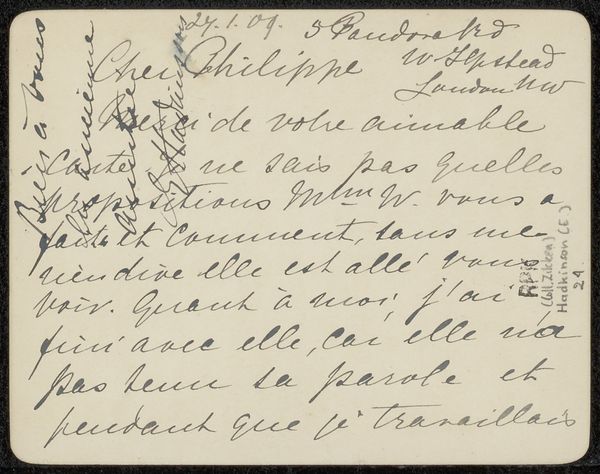 27.1.09. 5 Pandora Rd
W. Hpstead
London NW
Cher Philippe
Merci de votre aimable
carte, ne sais pas quelles
propositions Mme W. vous a
faite et comment, sans me
rien dire elle est allé vous
voir. Quant à moi, j'ai
fini avec elle, car elle n'a
pas tenu sa parole et
pendant que je travaillais
Bien à vous
ancienne
E Hadkinson
RPK
(coll. Zilcken)
Hadkinson (E.)
29